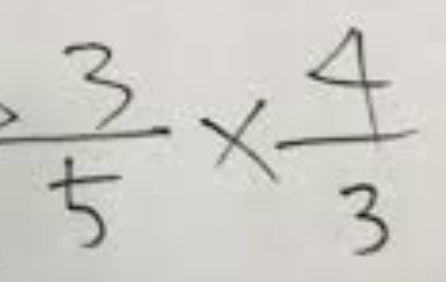 3/5 × 4/3